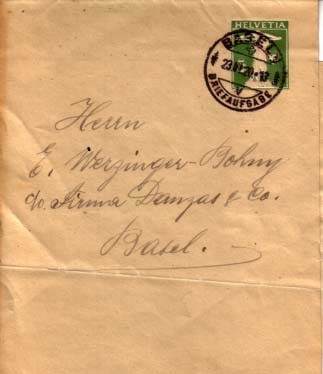 HELVETIA
BASEL
BRIEFAUFGABE
Herrn
E. Werzinger-Bohny
c/o. Firma Danzas & Co.
Basel.